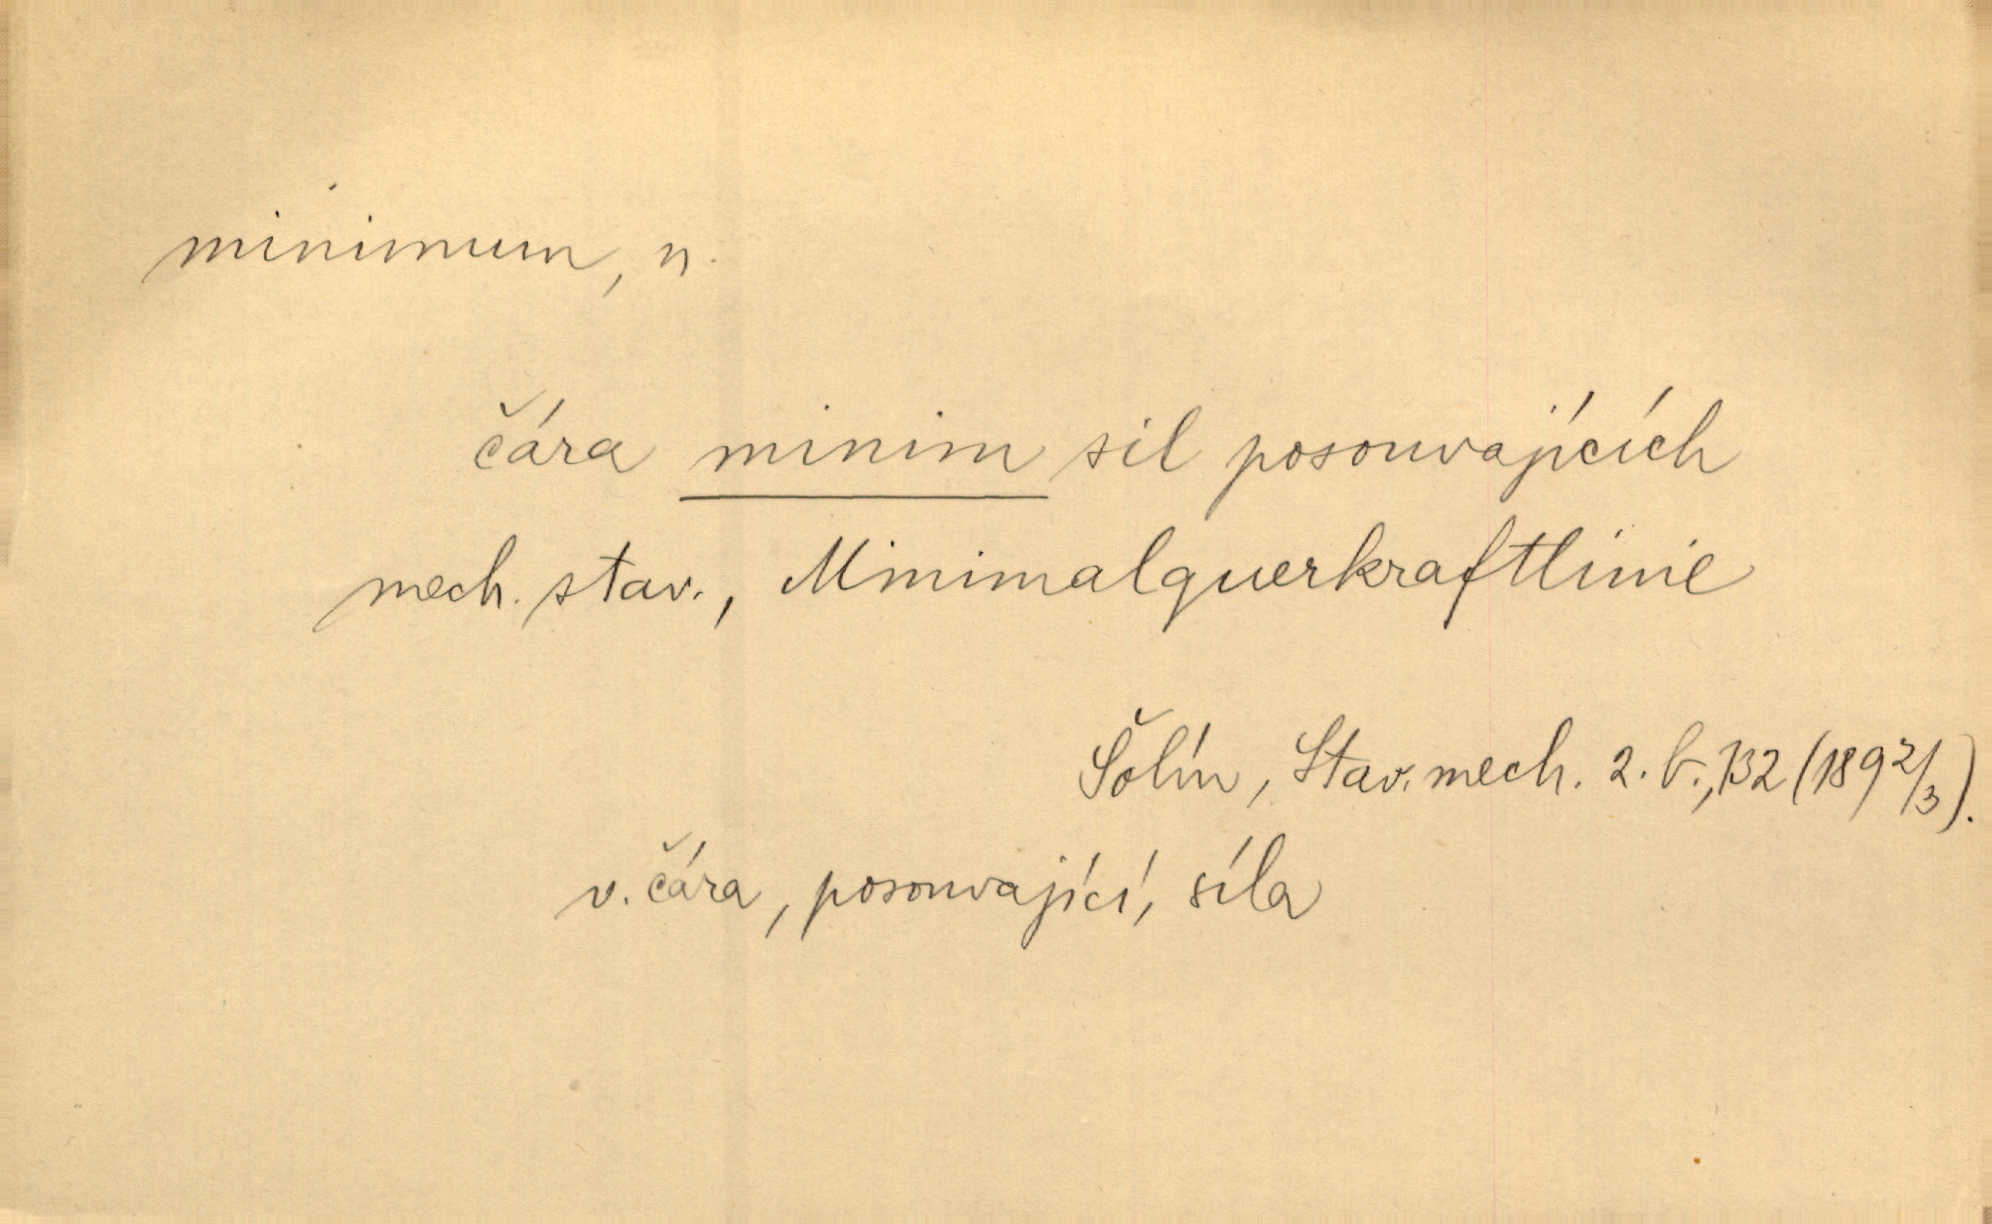 minimum, n.
čára minim sil posouvajících
mech. stav., Minimalquerkraftlinie
Šolín, Stav. mech. 2. b., 132 (1892/3).
v. čára, posouvající, síla